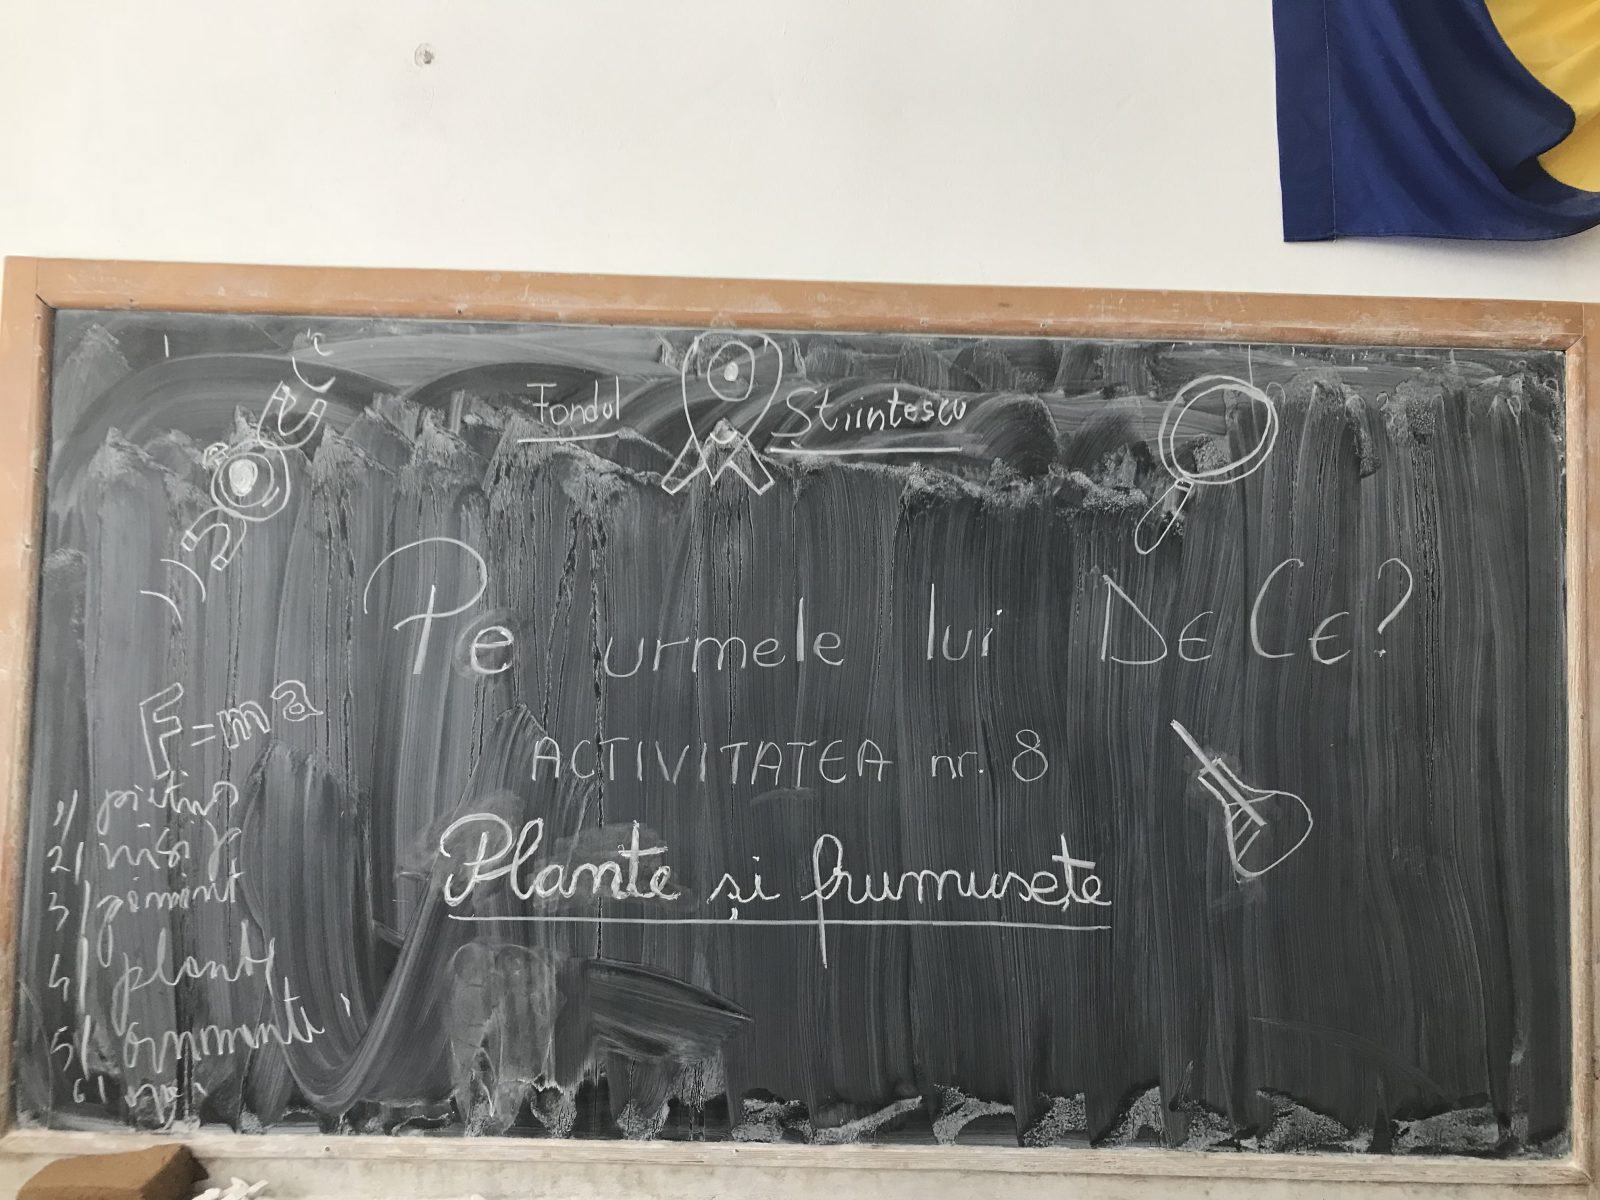 Fondul Științescu
Pe urmele lui DE CE?
F=ma
ACTIVITATEA nr. 8
Plante și frumusețe
1/ pietriș
2/ nisip
3/ pămînt
4/ plante
5/ ornamente
6/ apă